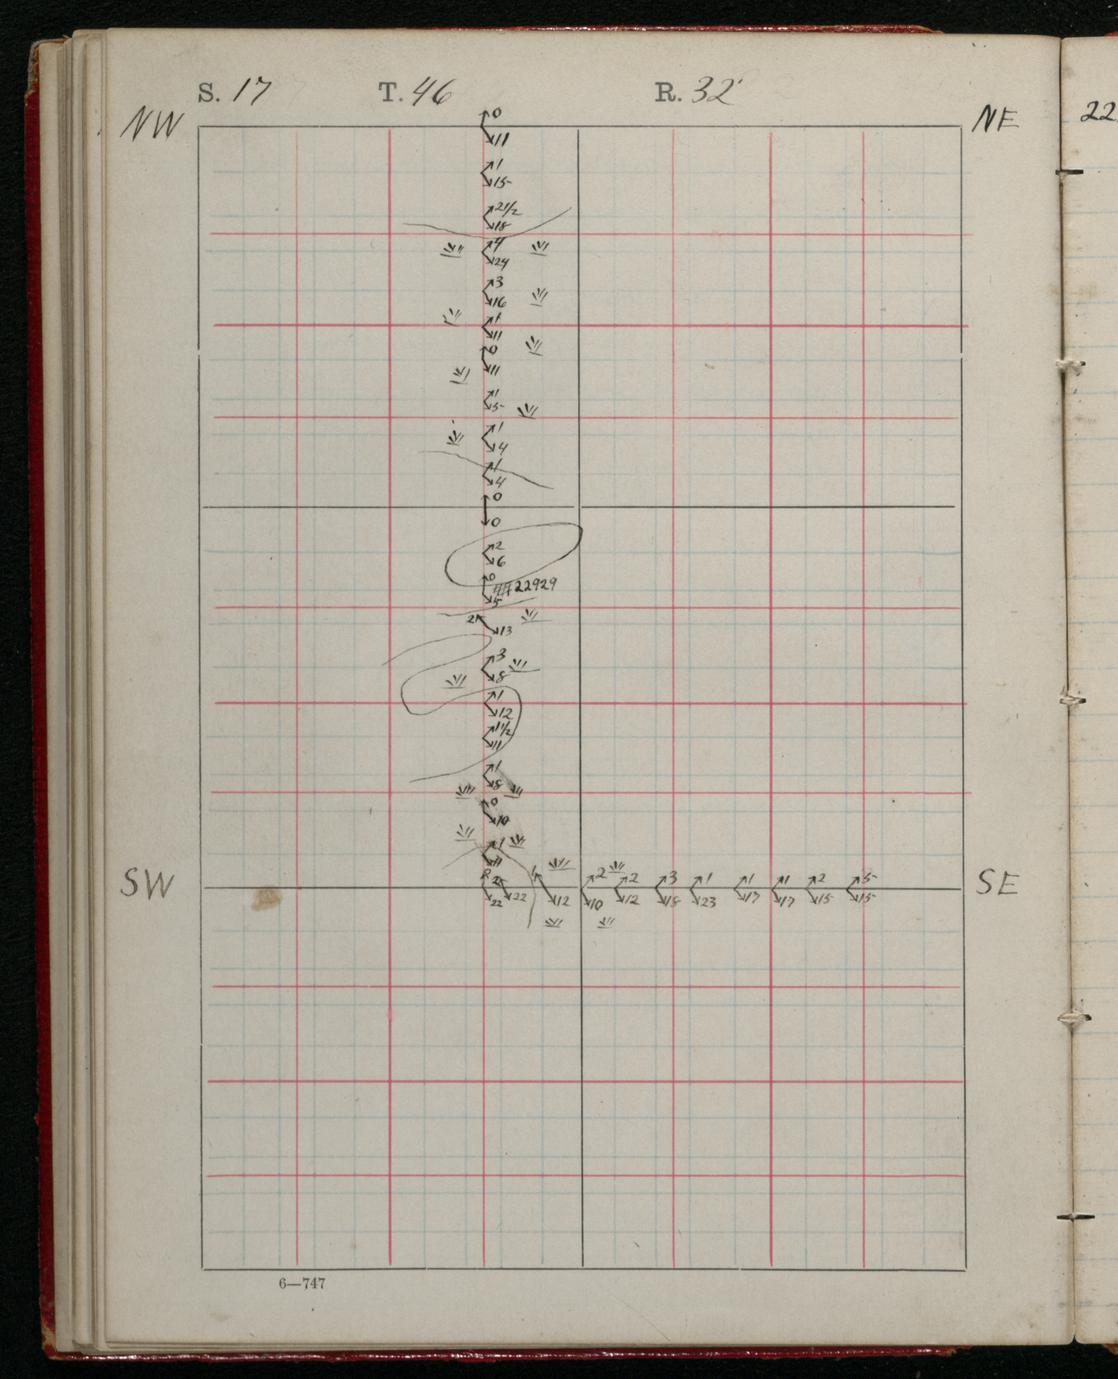 S. 17 T. 46 R. 32
NW NE
22
0
11
1
15
2 1/2
18
4
24
3
16
1
11
0
11
1
5
1
4
1
4
0
0
2
6
0
22929
5
2 13
3
8
1
12
1 1/2
11
1
8
0
10
1
11
SW SE
2 2 2 3 1 1 1 2 5
22 22 12 10 12 18 23 17 17 15 15
6—747